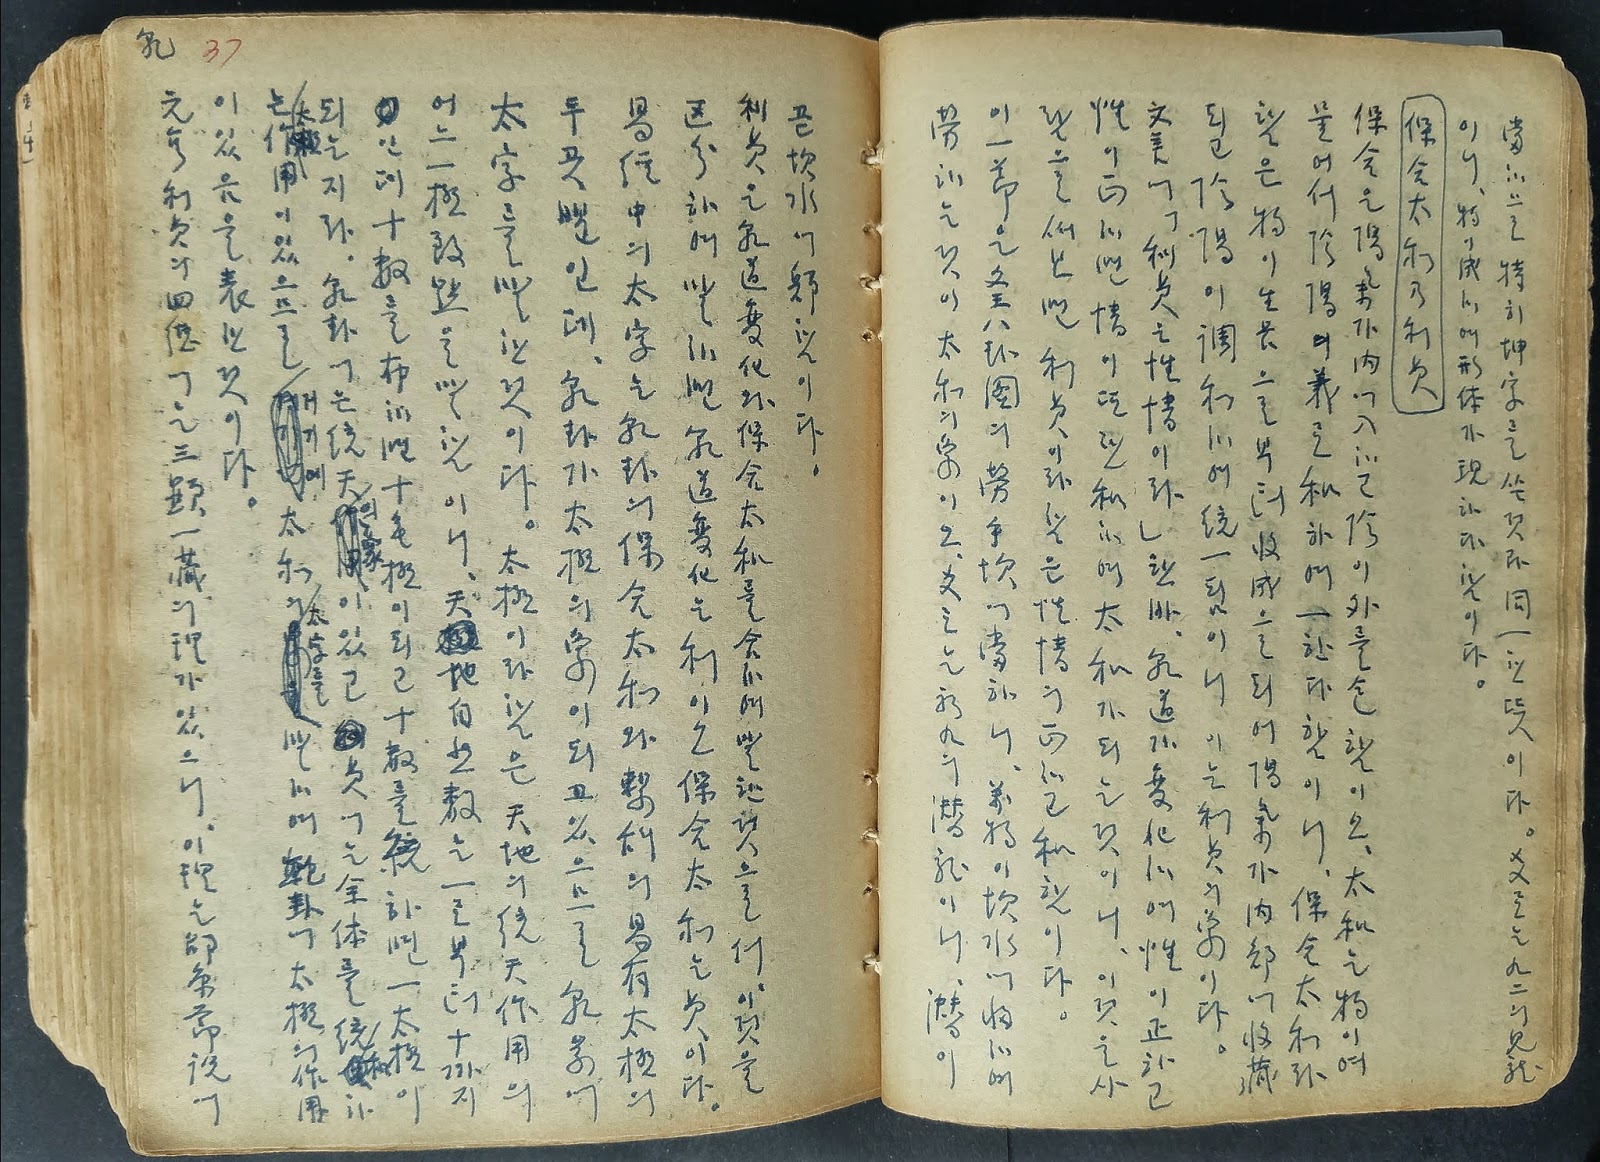 當하므로 特히 坤字를 쓴것과 同一한 뜻이다。爻로는 九二의 見龍
이니、物이 成하여 形体가 現하다함이다。
保合太和乃利貞
保合은 陽氣가 內에 入하고 陰이 外를 包함이오、太和는 物이여
물어서 陰陽의 義로 和하여 一한다함이니、保合太和라
함은 物이 生長으로부터 收成으로 되어 陽氣가 內部에 收藏
되고 陰陽이 調和하여 統一됨이니 이는 利貞의 象이다。
文言에「利貞은 性情이라」한바、乾道가 變化하여 性이 正하고
性이 正하면 情이 또한 和하여 太和가 되는것이니、이것을 사
람으로써 보면 利貞이라함은 性情의 正하고 和함이다。
이一節은 文王八卦圖의 勞乎坎에 當하니、萬物이 坎水에 歸하여
勞하는것이 太和의 象이오、爻로는 初九의 潛龍이니、潛이
乾 37
곧 坎水에 歸함이다。
利貞은 乾道變化와 保合太和를 合하여 말한것으로서、이것을
区分하여 말하면 乾道變化는 利이오 保合太和는 貞이다。
易經中의 太字는 乾卦의 保合太和와 繫辭의 易有太極의
두곳뿐인데、乾卦가 太極의 象이 되고 있으므로 乾象에
太字를 말한것이다。太極이라함은 天地의 統天作用의
어느一極致點을 말함이니、天地自然數는 一로부터 十까지
인데 十數를 布하면 十毛極이되고 十數를 統하면 一太極이
되는지라。乾卦에는 統天의象이 있고 貞에는 全体를 統하
는 作用이 있으므로 여기에 太和의 太字를 말하여 乾卦에 太極의作用
이 있음을 表한것이다。
元亨利貞의 四德에는 三顯一藏의 理가 있으니、이理는 節氣節說에